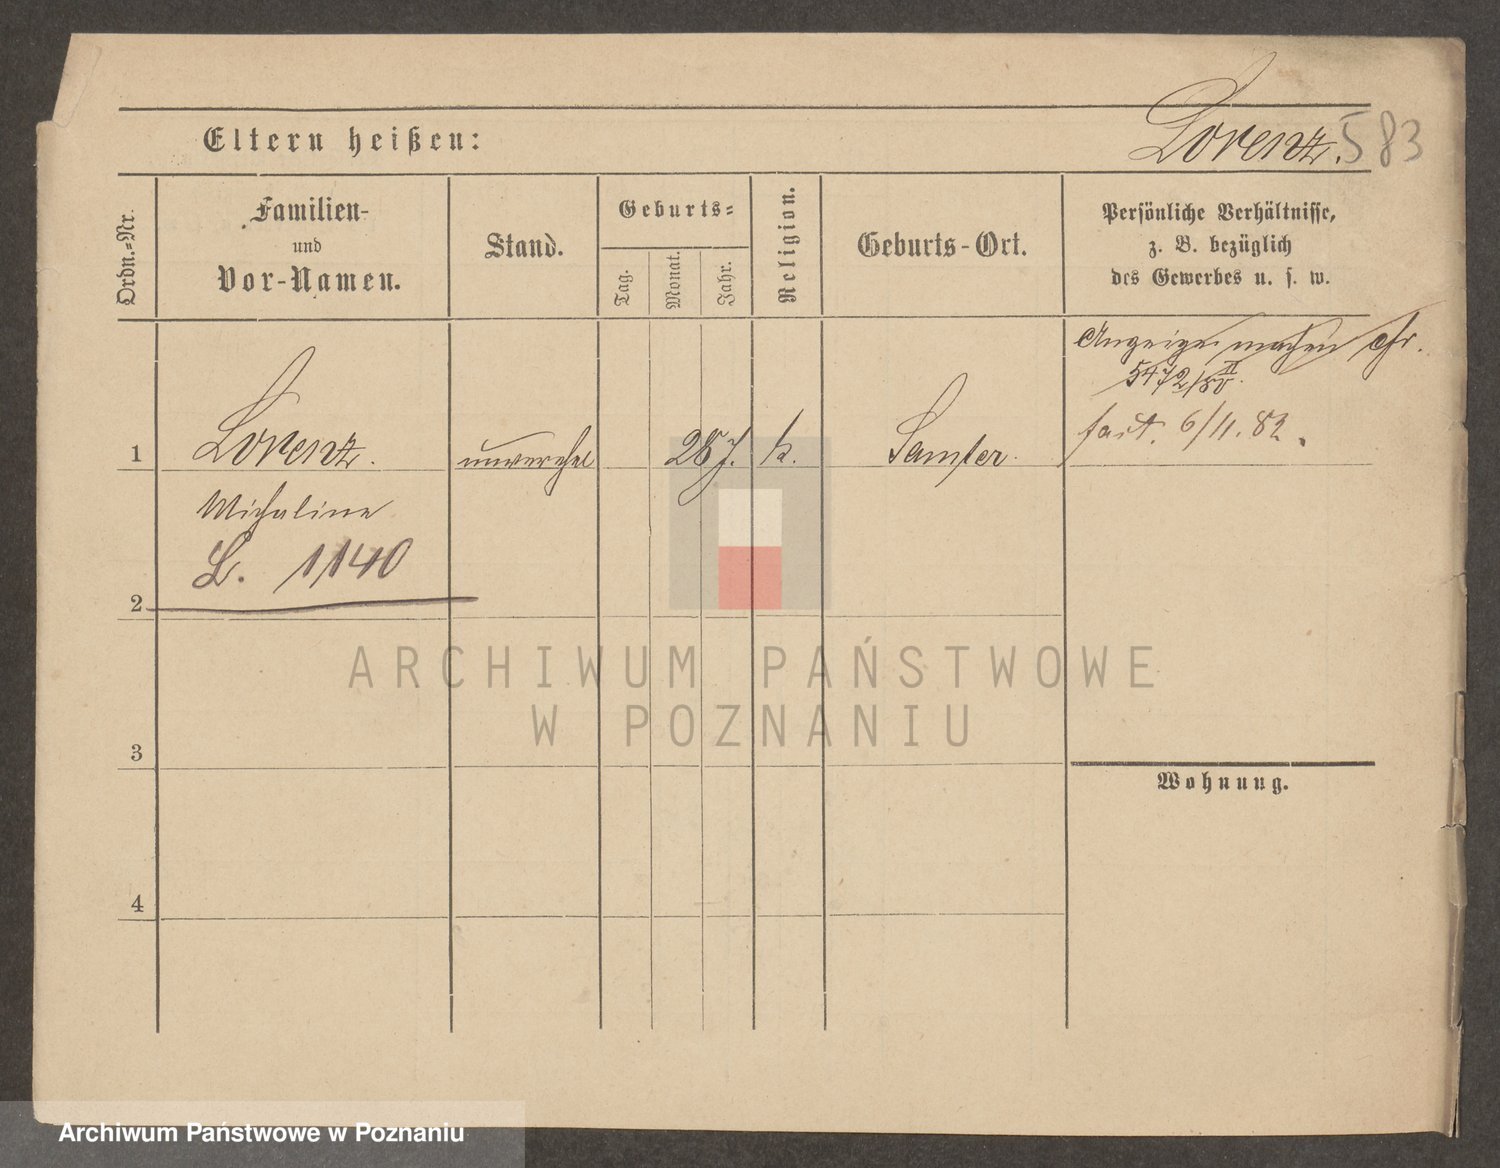 Lorenz. 583
Eltern heißen:
Ordn.-Nr.
Familien-
und
Vor-Namen.
Stand.
Geburts-
Tag.
Monat.
Jahr.
Religion.
Geburts-Ort.
Persönliche Verhältnisse,
z. B. bezüglich
des Gewerbes u. s. w.
Anzeige machen
5472/80 II.
fact. 6/11. 82.
1 Lorenz. unverehel 28 J. k. Samter.
Michaline
L. 1140
2
ARCHIWUM PAŃSTWOWE
W POZNANIU
3
Wohnung.
4
Archiwum Państwowe w Poznaniu